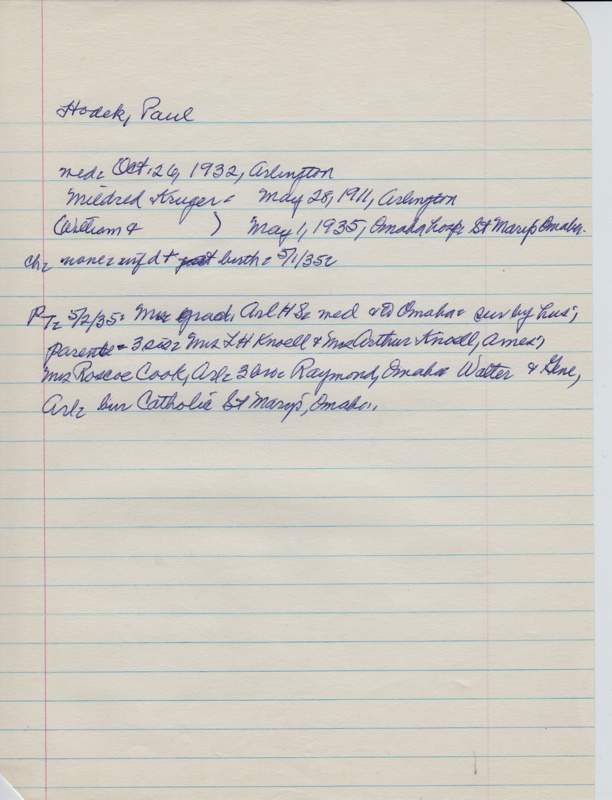 Hodek, Paul
med: Oct. 26, 1932, Arlington
Mildred Kruger - May 28, 1911, Arlington
(William & ) May 1, 1935, Omaha hosp: St Marys Omaha.
ch: none: inf d + birth: 5/1/35:
PT: 5/2/35: Mrs grad. Arl H Sc med & to Omaha: sur by hus;
parents - 3 sis: Mrs L H Knoell & Mrs Arthur Knoell, Ames;
Mrs Roscoe Cook, Arl: 3 bro: Raymond, Omaha: Walter & Gene,
Arl: bur Catholic St Mary's, Omaha.